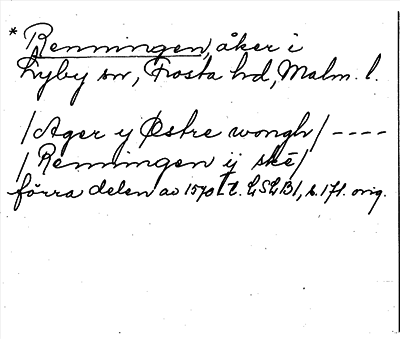 * Renningen, åker i
Lyby sn, Frosta hd, Malm. l.
/Ager y Østre wongh/ ----
/Renningen ij skē/
förra delen av 1570 t. LSLB1, s. 171. orig.